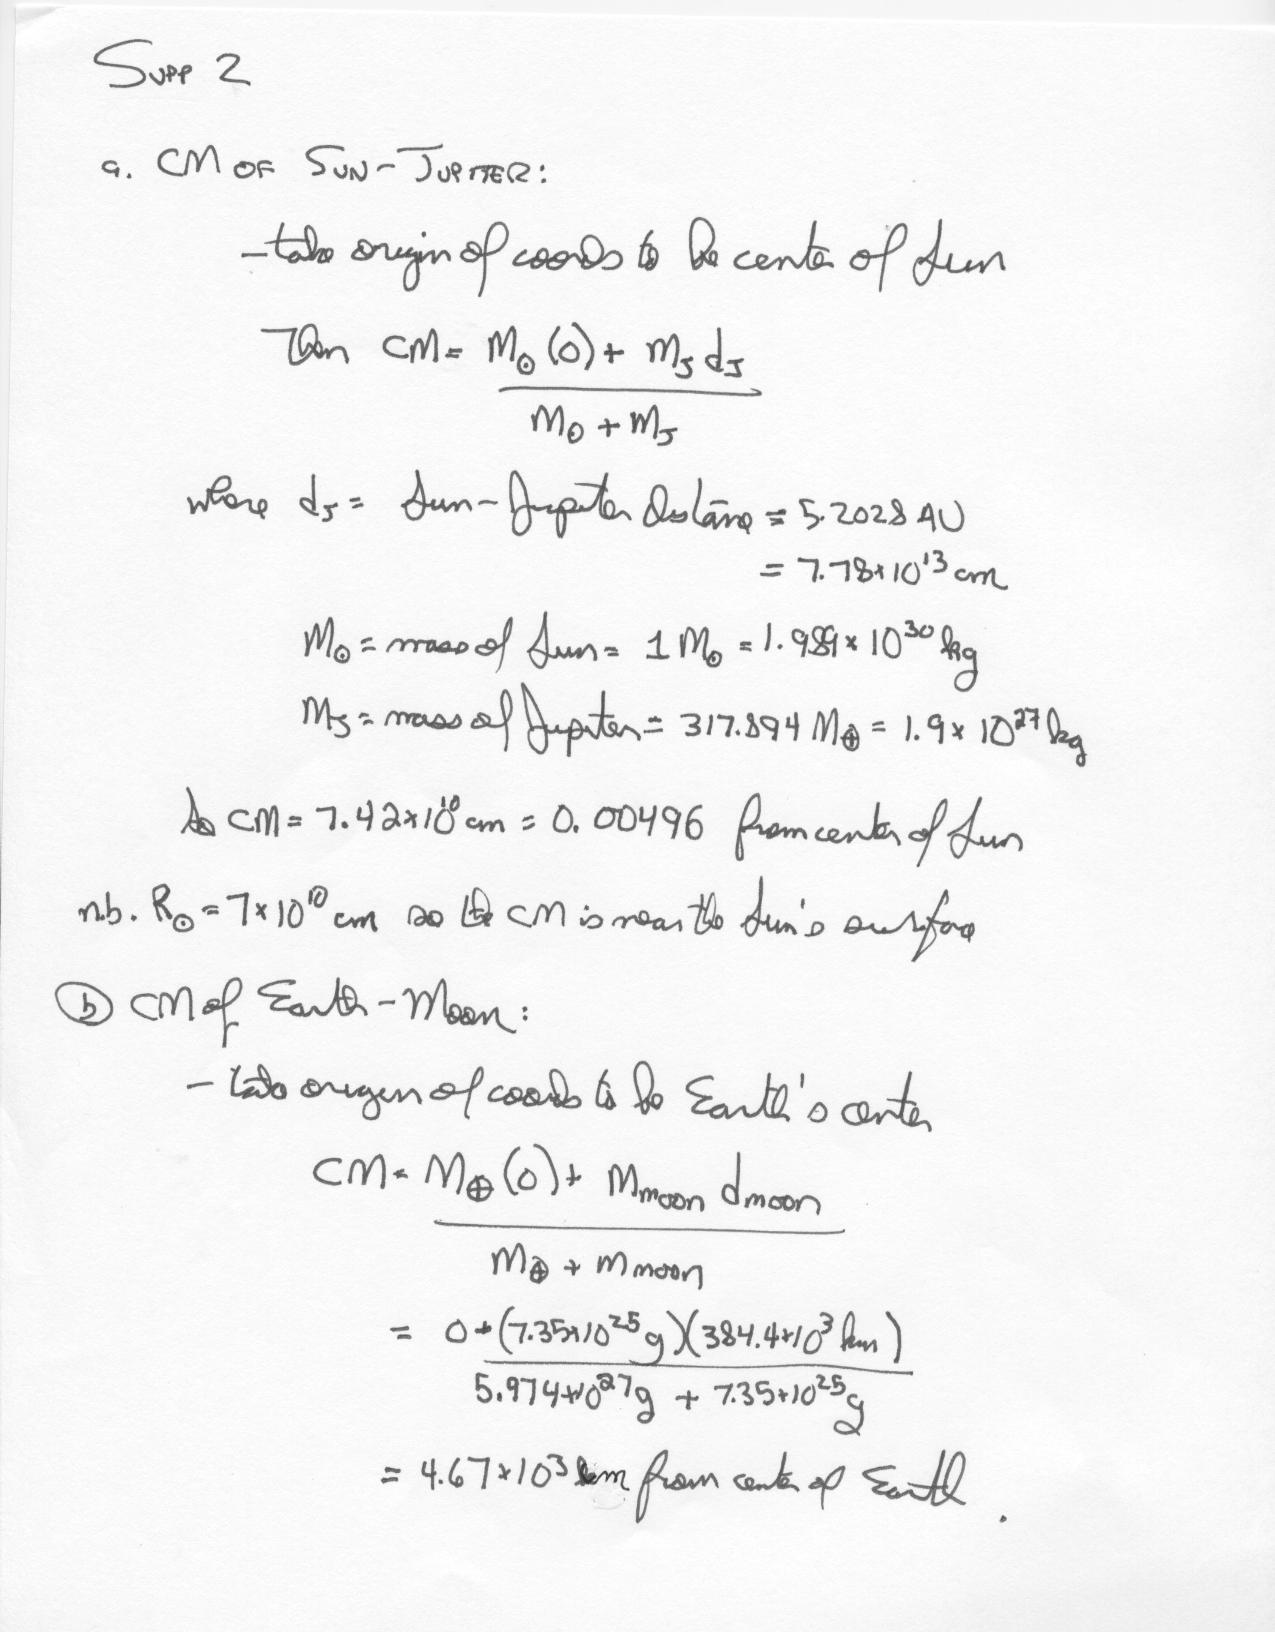 SUPP 2
a. CM OF SUN-JUPITER:
- take origin of coords to be center of Sun
Then CM = M☉(0) + MJ dJ
M☉ + MJ
where dJ = Sun-Jupiter distance = 5.2028 AU
= 7.78×10¹³ cm
M☉ = mass of Sun = 1 M☉ = 1.989×10³⁰ kg
MJ = mass of Jupiter = 317.894 M⊕ = 1.9×10²⁷ kg
So CM = 7.42×10¹⁰ cm = 0.00496 from center of Sun
n.b. R☉ = 7×10¹⁰ cm so the CM is near the Sun's surface
b CM of Earth-Moon:
- take origin of coords to be Earth's center
CM = M⊕(0) + Mmoon dmoon
M⊕ + Mmoon
= 0 + (7.35×10²⁵ g)(384.4×10³ km)
5.974×10²⁷ g + 7.35×10²⁵ g
= 4.67×10³ km from center of Earth.